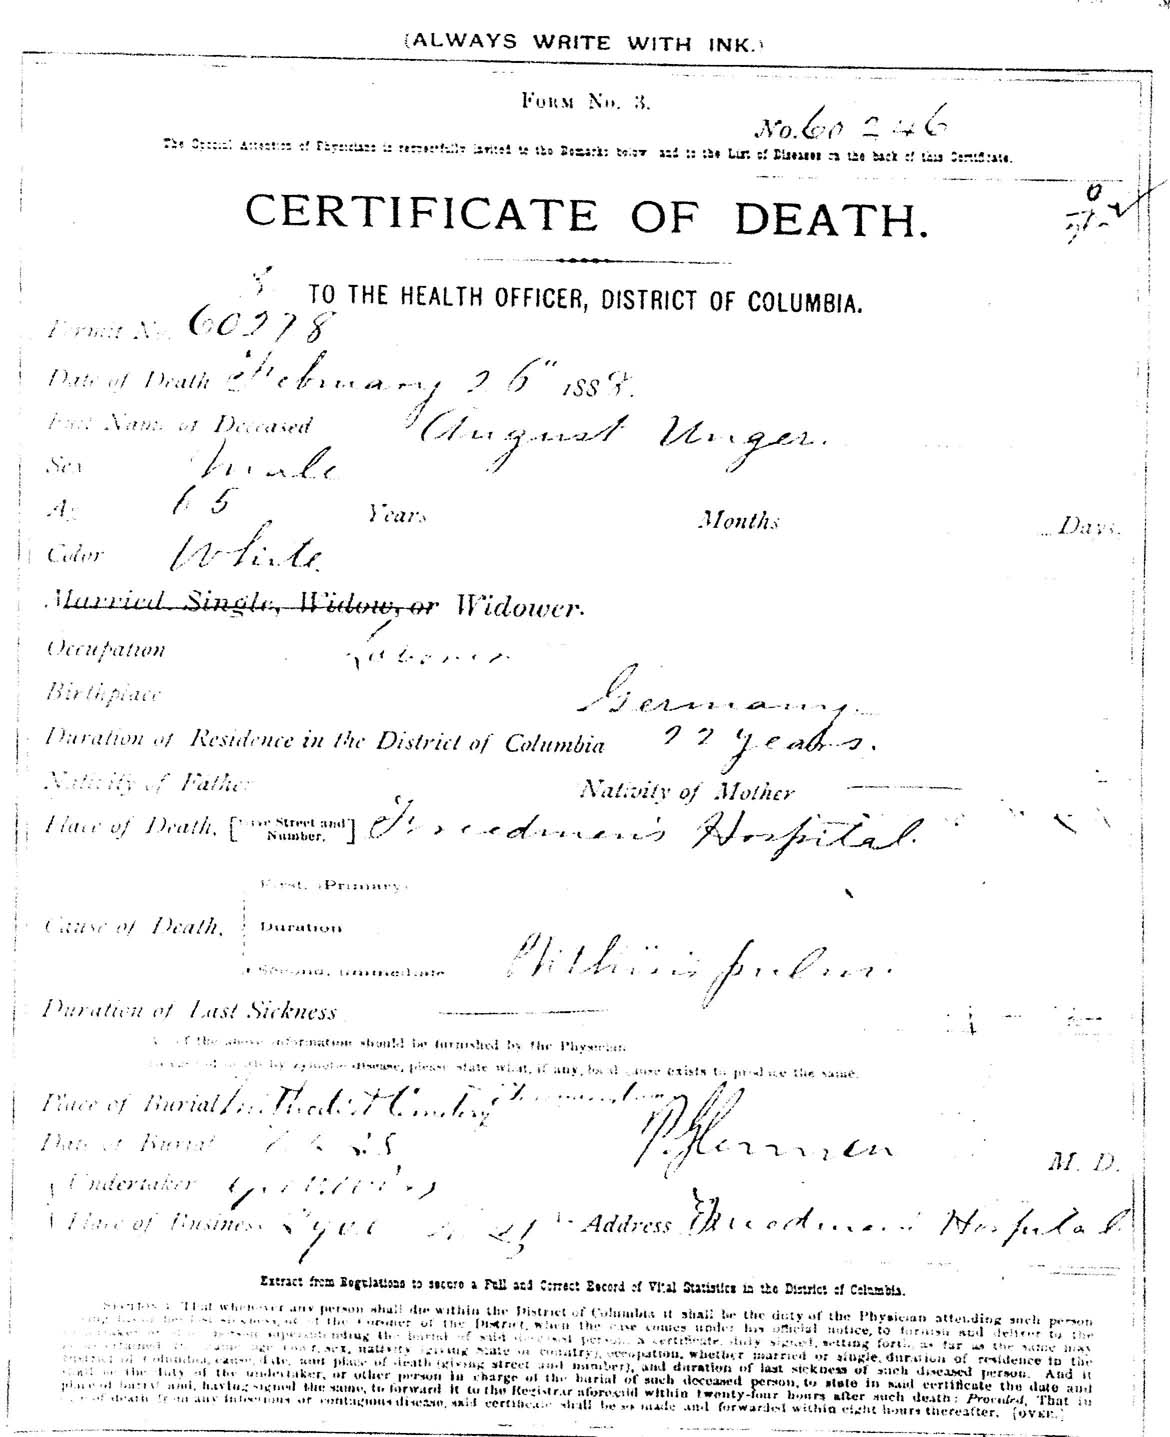 (ALWAYS WRITE WITH INK.)
FORM No. 3.
No. 60246
The Special Attention of Physicians is respectfully invited to the Remarks below and to the List of Diseases on the back of this Certificate.
CERTIFICATE OF DEATH.
TO THE HEALTH OFFICER, DISTRICT OF COLUMBIA.
Permit No. 60278
Date of Death February 26" 1888.
Full Name of Deceased August Unger.
Sex Male
Age 65 Years Months Days.
Color White.
Married, Single, Widow, or Widower.
Occupation Laborer
Birthplace Germany.
Duration of Residence in the District of Columbia 22 years.
Nativity of Father Nativity of Mother
Place of Death, [Give Street and Number.] Freedmen's Hospital.
First, (Primary)
Cause of Death, Duration
Second, Immediate Phthisis pulm.
Duration of Last Sickness
All of the above information should be furnished by the Physician.
death by zymotic disease, please state what, if any, local cause exists to produce the same.
Place of Burial Methodist Cemetery
Date of Burial
M. D.
Undertaker
Place of Business Address Freedmen's Hospital.
Extract from Regulations to secure a Full and Correct Record of Vital Statistics in the District of Columbia.
SECTION 1. That whenever any person shall die within the District of Columbia it shall be the duty of the Physician attending such person
during his or her last sickness, or of the Coroner of the District, when the case comes under his official notice, to furnish and deliver to the
undertaker or other person superintending the burial of said deceased person, a certificate, duly signed, setting forth, as far as the same may
be ascertained, the name, age, color, sex, nativity (giving State or country), occupation, whether married or single, duration of residence in the
District of Columbia, cause, date, and place of death (giving street and number), and duration of last sickness of such deceased person. And it
shall be the duty of the undertaker, or other person in charge of the burial of such deceased person, to state in said certificate the date and
place of burial, and, having signed the same, to forward it to the Registrar aforesaid within twenty-four hours after such death: Provided, That in
case of death from any infectious or contagious disease, said certificate shall be so made and forwarded within eight hours thereafter. [OVER.]